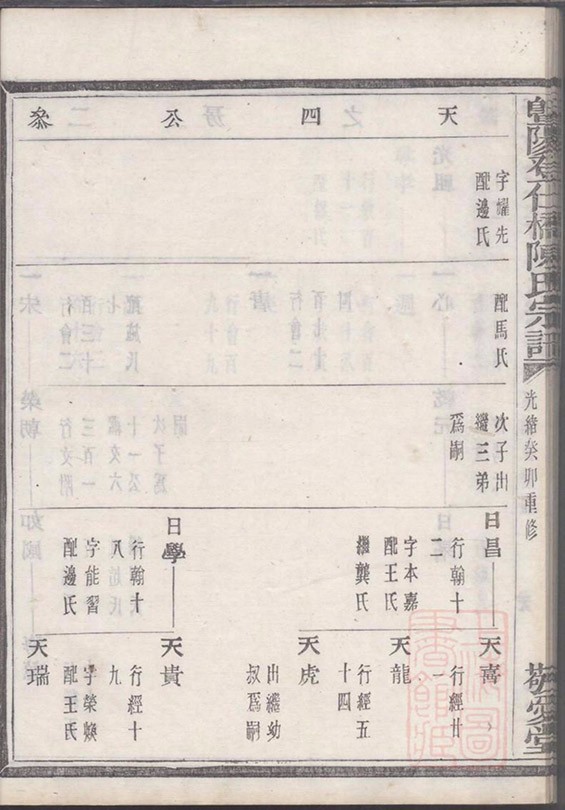 暨陽登仕橋陳氏宗譜
光緒癸卯重修
敬愛堂
天 四 公 叅
字耀先
配邊氏
配馬氏
次子出
繼三弟
爲嗣
日昌
行翰十
二
字本嘉
配王氏
繼龔氏
日學
行翰十
八
字能習
配邊氏
天喜
行經廿
一
天龍
行經五
十四
天虎
出繼幼
叔爲嗣
天貴
行經十
九
字榮煥
配王氏
天瑞